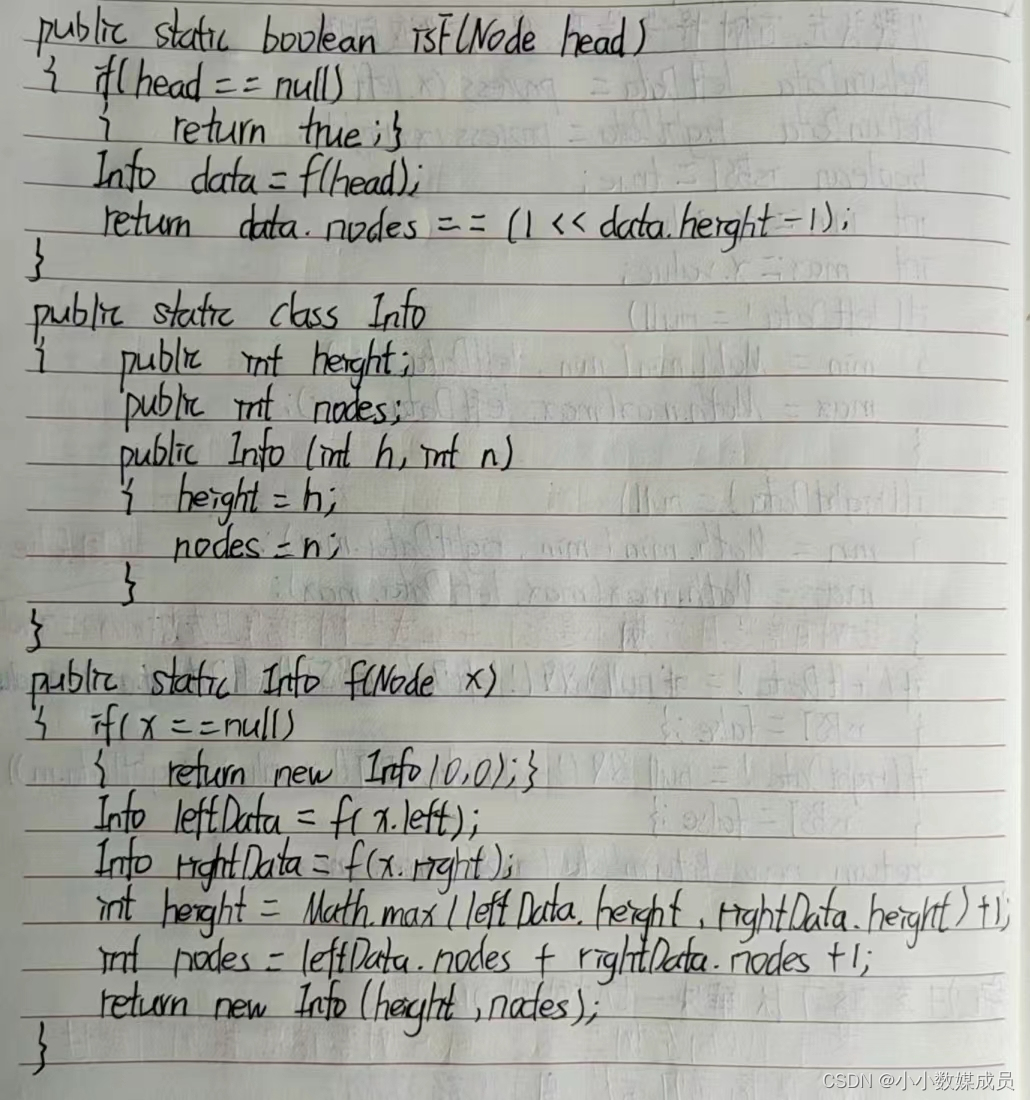 public static boolean isF(Node head)
{ if(head == null)
{ return true;}
Info data = f(head);
return data.nodes == (1 << data.height - 1);
}
public static class Info
{ public int height;
public int nodes;
public Info (int h, int n)
{ height = h;
nodes = n;
}
}
public static Info f(Node x)
{ if(x == null)
{ return new Info(0,0);}
Info leftData = f(x.left);
Info rightData = f(x.right);
int height = Math.max(leftData.height, rightData.height)+1;
int nodes = leftData.nodes + rightData.nodes +1;
return new Info(height,nodes);
}
CSDN @小小数媒成员